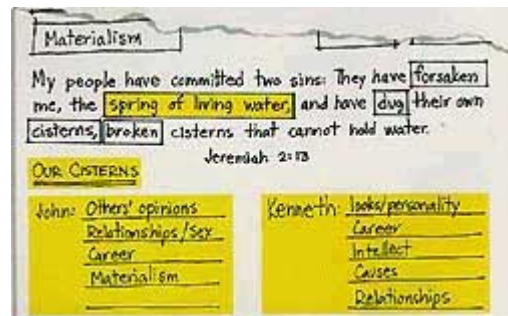 Materialism
My people have committed two sins: They have forsaken
me, the spring of living water, and have dug their own
cisterns, broken cisterns that cannot hold water.
Jeremiah 2:13
OUR CISTERNS
John: Others' opinions
Relationships/Sex
Career
Materialism
Kenneth: looks/personality
Career
Intellect
Causes
Relationships